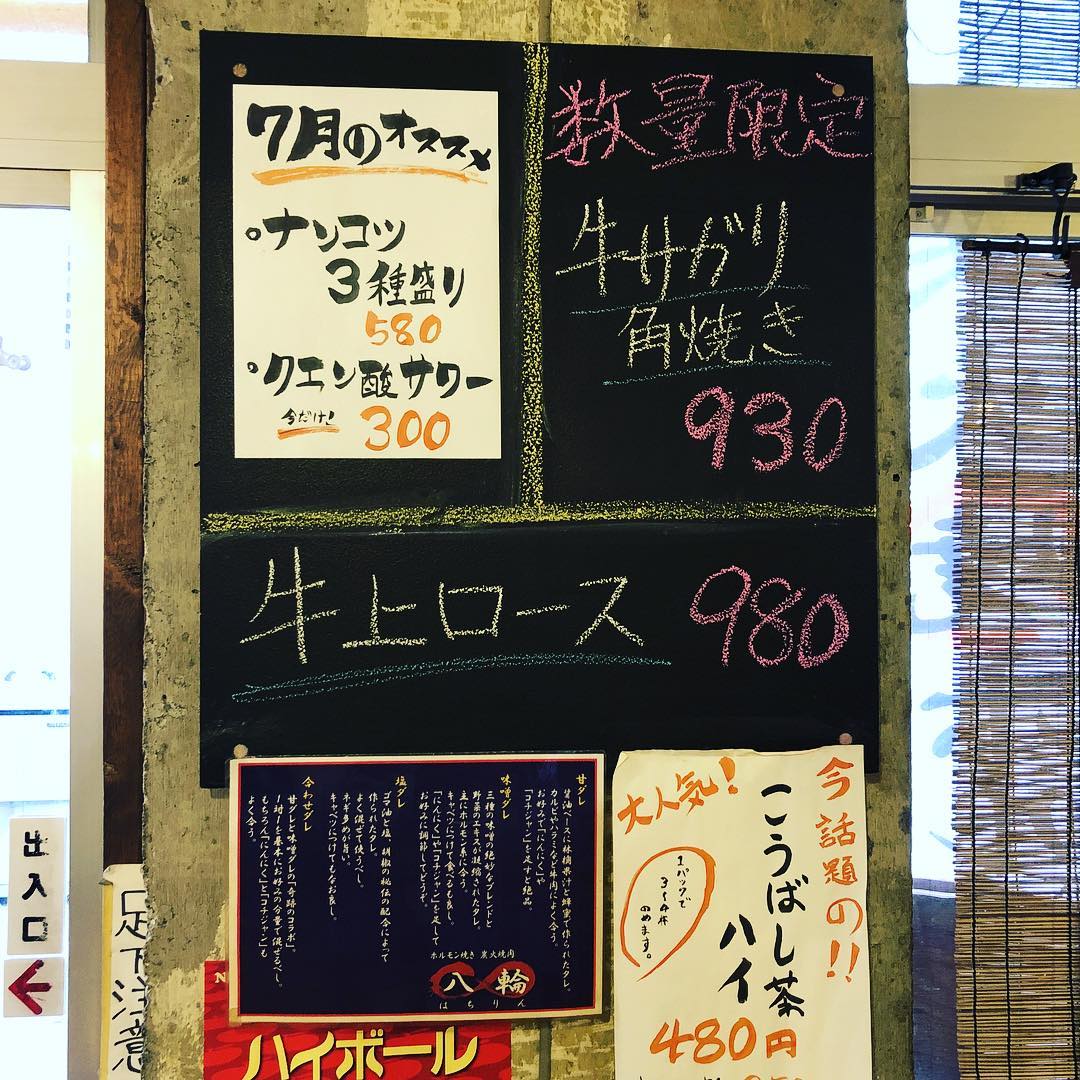 7月のオススメ
・ナンコツ
3種盛り
580
・クエン酸サワー
今だけ!
300
数量限定
牛サガリ
角焼き
930
牛上ロース
980
甘ダレ
醤油ベースに林檎果汁と蜂蜜で作られたタレ。
カルビやハラミなど牛肉によく合う。
お好みで「にんにく」や
「コチジャン」を足すと絶品。
味噌ダレ
三種の味噌の絶妙なブレンドと
野菜のエキスが凝縮されたタレ。
主にホルモン系に合う。
キャベツにつけて食べると良し。
「にんにく」や「コチジャン」を足して
お好みに調節してどうぞ。
塩ダレ
ゴマ油と塩、胡椒の秘伝の配合によって
作られたタレ。
よく混ぜて使うべし。
ネギ多めが旨い。
キャベツにつけてもなお良し。
合わせダレ
甘ダレと味噌ダレの「奇跡のコラボ」。
1対1を基本にお好みの分量で混ぜるべし。
もちろん「にんにく」と「コチジャン」も
よく合う。
ホルモン焼き 炭火焼肉
八輪
はちりん
今話題の!!
大人気!
こうばし茶
ハイ
1パックで
3〜4杯
のめます。
480円
ハイボール
出入口
足下注意